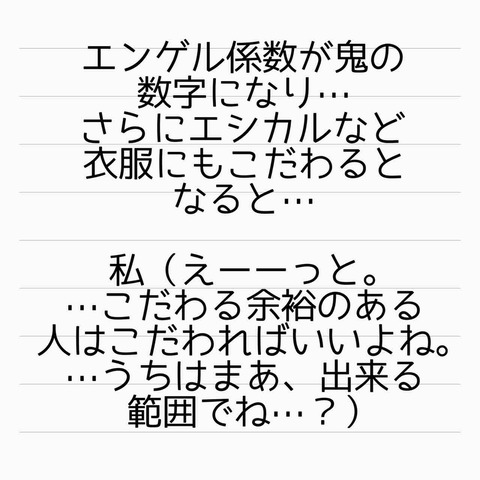 エンゲル係数が鬼の
数字になり…
さらにエシカルなど
衣服にもこだわると
なると…
私（えーーっと。
…こだわる余裕のある
人はこだわればいいよね。
…うちはまあ、出来る
範囲でね…？）